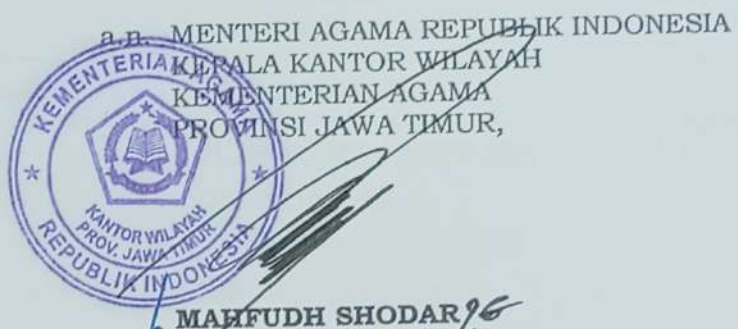 a.n. MENTERI AGAMA REPUBLIK INDONESIA
KEPALA KANTOR WILAYAH
KEMENTERIAN AGAMA
PROVINSI JAWA TIMUR,
KEMENTERIAN AGAMA
KANTOR WILAYAH
PROV. JAWA TIMUR
REPUBLIK INDONESIA
MAHFUDH SHODAR